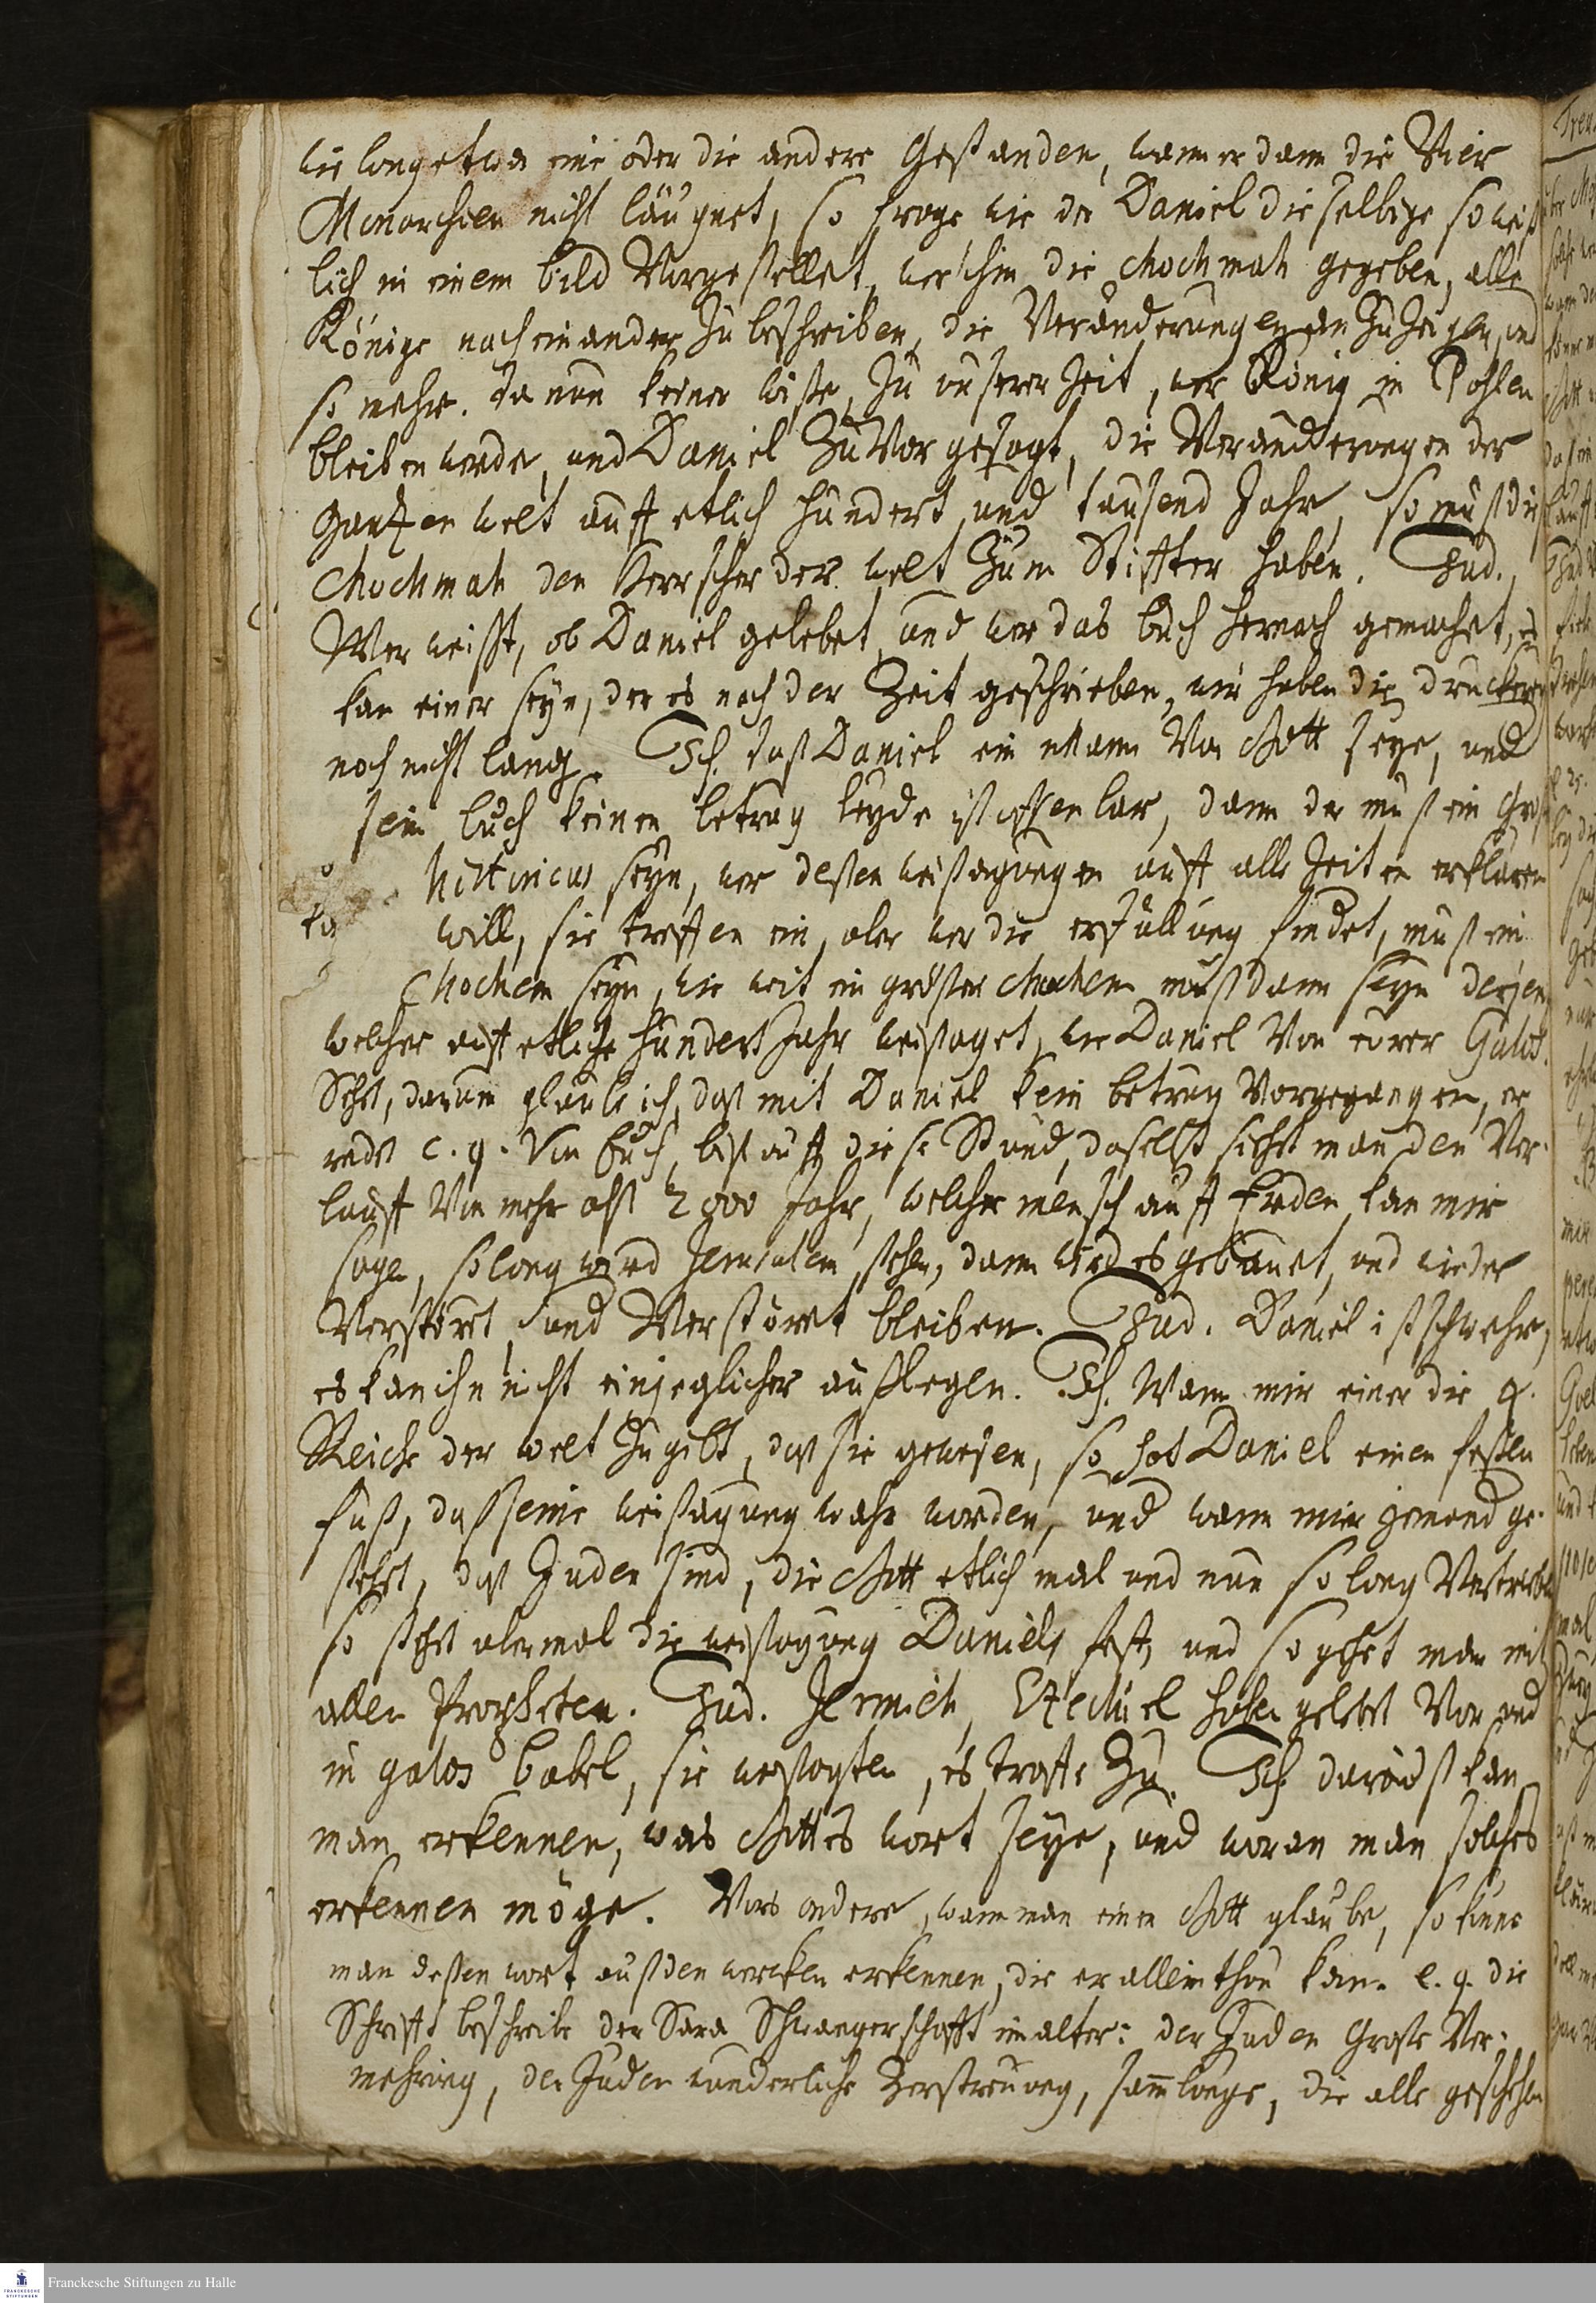 wie lang etwa eine oder die andere Gestanden, wann er dann die Vier
Monarchien nicht läugnet, so frage wie der Daniel dieselbige so weiß
lich in einem bild Vorgestellet, wer ihm die chochmah gegeben, alle
Könige nach einander zu beschreiben, die Veränderungen an zu zeigen, und
so mehr. da nun keiner wiste, zu unserer Zeit, wer König in Pohlen
bleiben werde, und Daniel zuvor gesagt, die Veränderungen der
Gantzen welt auff etlich hundert und tausend Jahr, so muß die
Chochmah den Herrscher der welt zum Stiffter haben. Jud.
Wer weißt, ob Daniel gelebet, und wer das buch hernach gemachet, es
kan einer seyn, der es nach der Zeit geschrieben, wir haben die druckerey
noch nicht lang. Ich. daß Daniel ein Mann Von Gott seye, und
sein buch keinen betrug leyde ist offenbar, dann der muß ein Groß
historicus seyn, wer deßen weißagungen auff alle Zeiten erklären
will, sie treffen ein, aber wer die erfüllung findet, muß ein
Chochem seyn, wie weit ein größter chochem muß dann seyn derjen
welcher auff etliche hundert Jahr weißaget, wie Daniel Von eurer Galos
Seht, darum glaube ich, daß mit Daniel kein betrug Vorgegangen, er
redet e. g. Von Euch, biß auff diese Stund, daselbst siehet man den Ver-
lauff Von mehr alß 2000 Jahr, welcher mensch auff Erden kan mir
sagen, so lang wird Jerusalem stehen, dann wird es gebauet, und wieder
Verstöret, und Verstöret bleiben. Jud. Daniel ist schwehr,
es kan ihn nicht ein jeglicher außlegen. Ich. Wann mir einer die 4.
Reiche der welt zu gibt, daß sie gewesen, so hat Daniel einen festen
fuß, daß seine weißagung wahr worden, und wann mir jemand ge-
stehet, daß Juden sind, die Gott etlich mal und nun so lang
so stehet abermal die weißagung Daniels fest, und so gehet man mit
allen Propheten. Jud. Jermieh, Ezechiel haben gelebet Vor und
in galos babel, sie weißagten, es traffe zu. Ich. darauß kan
man erkennen, was Gottes wort seye, und woran man solches
erkennen möge. Vors andere, wann man einen Gott glaube, so könne
man deßen wort auß den wercken erkennen, die er allein thun kan. e. g. die
Schrifft beschreibe der Sara Schwangerschafft im alter: der Juden Große Ver-
mehrung, der Juden wunderliche Zerstreuung, samlunge, die alle geschehen
Franckesche Stiftungen zu Halle